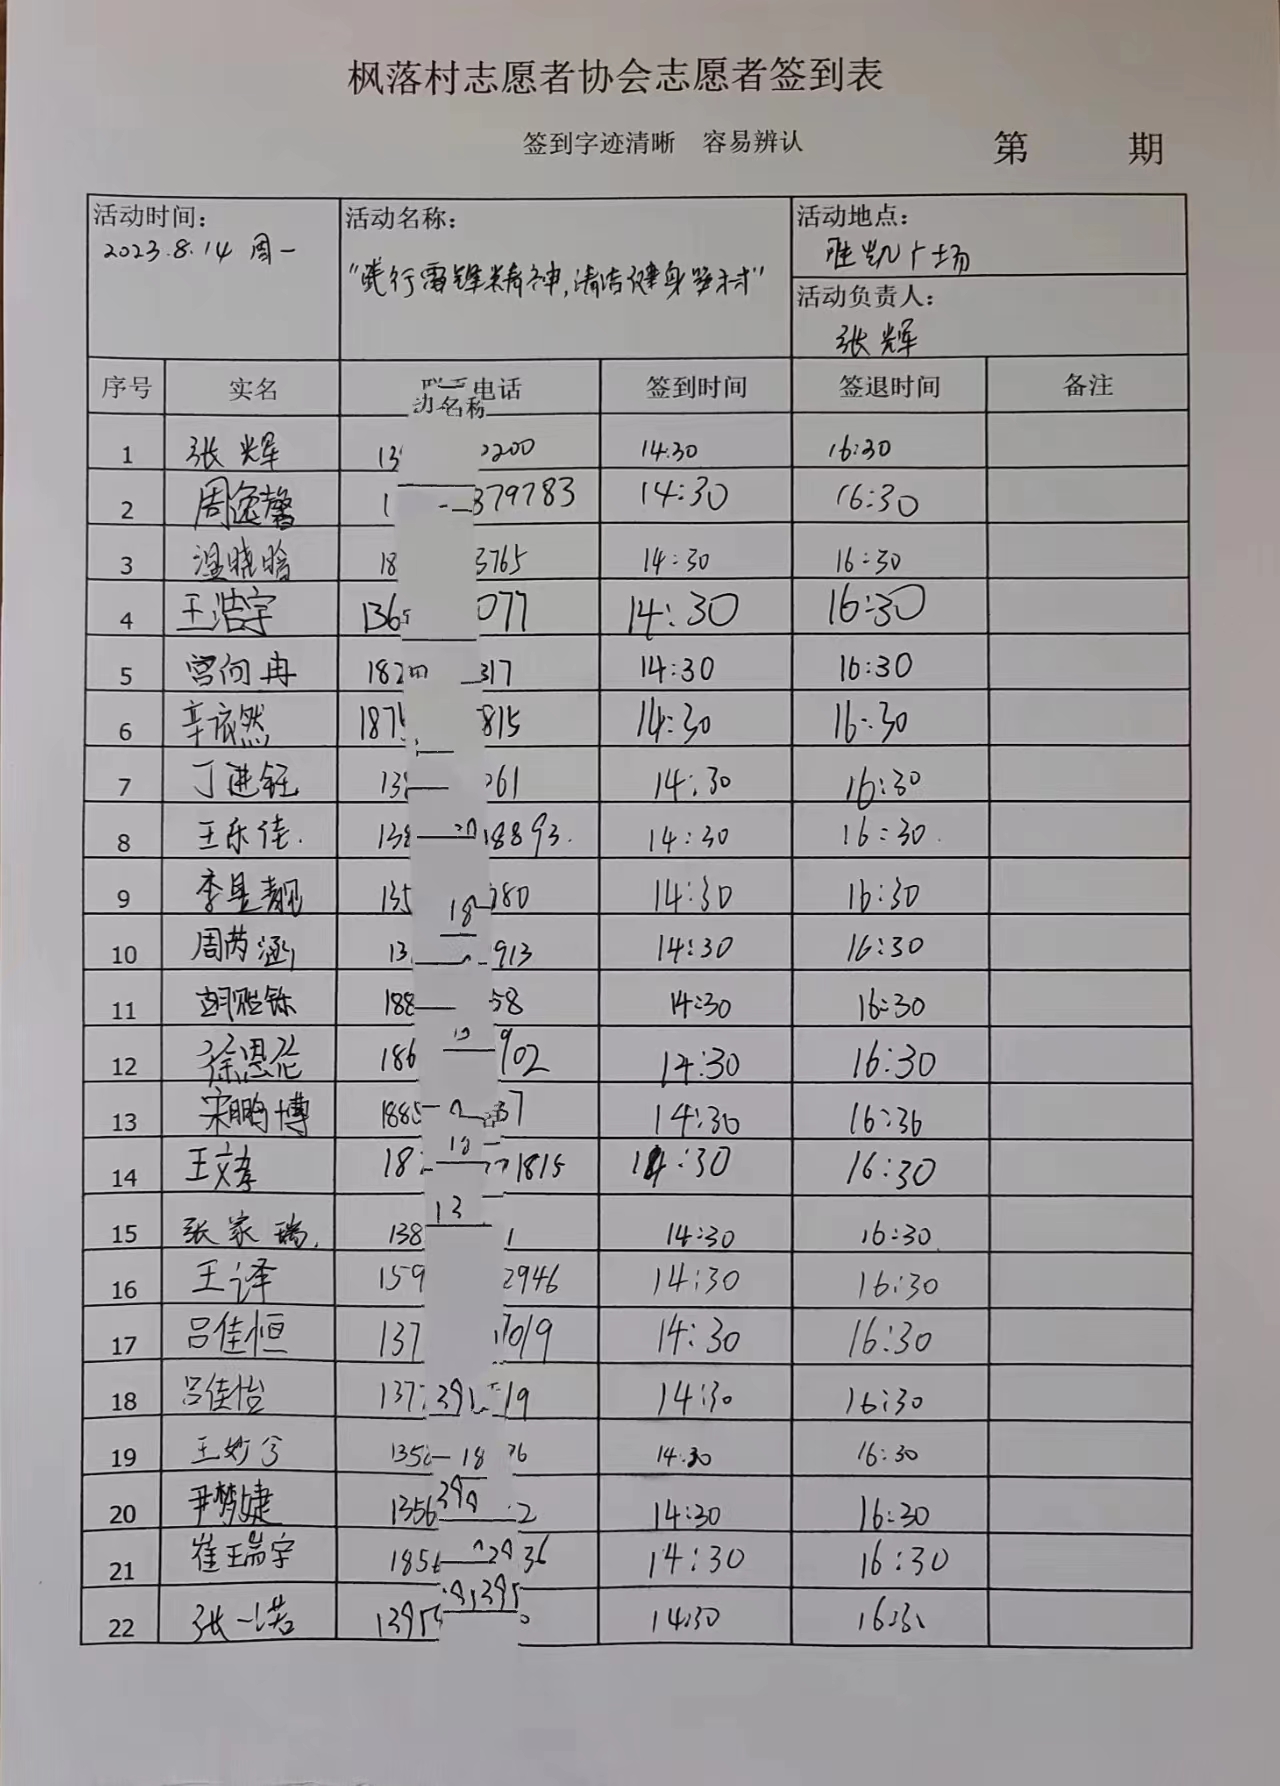 枫落村志愿者协会志愿者签到表
签到字迹清晰 容易辨认 第 期
活动时间：
2023.8.14 周一
活动名称：
"践行雷锋精神,清洁健身器材"
活动地点：
胜凯广场
活动负责人：
张辉
序号 实名 电话 签到时间 签退时间 备注
动名称
1 张辉 13 2200 14:30 16:30
2 周逸馨 1 379783 14:30 16:30
3 温晓晗 18 3765 14:30 16:30
4 王浩宇 136 077 14:30 16:30
5 宫向冉 182 317 14:30 16:30
6 辛依然 187 815 14:30 16:30
7 丁进钰 13 261 14:30 16:30
8 王乐佳. 138 18893. 14:30 16:30.
9 李昱靓 135 780 14:30 16:30
18
10 周芮涵 13 913 14:30 16:30
11 胡 铄 188 58 14:30 16:30
12 徐恩伦 186 902 14:30 16:30
13 宋鹏博 1885 37 14:30 16:30
14 王文孝 18 1815 14:30 16:30
13
15 张家瑞. 138 1 14:30 16:30.
16 王译 159 2946 14:30 16:30
17 吕佳恒 137 7019 14:30 16:30
18 吕佳怡 137 391 19 14:30 16:30
19 王妙兮 135 18 76 14:30 16:30
20 尹梦婕 1356 2 14:30 16:30
21 崔瑞宇 185 36 14:30 16:30
22 张一诺 1395 14:30 16:30